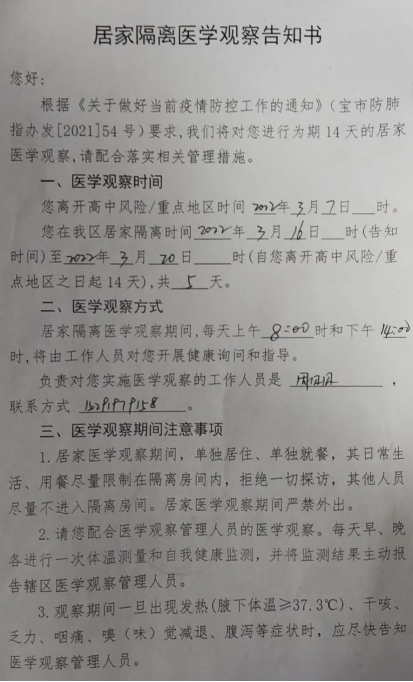 居家隔离医学观察告知书
您好:
根据《关于做好当前疫情防控工作的通知》(宝市防肺
指办发[2021]54号)要求,我们将对您进行为期14天的居家
医学观察,请配合落实相关管理措施。
一、医学观察时间
您离开高中风险/重点地区时间 2022年 3月 7日 时。
您在我区居家隔离时间 2022 年 3 月 16 日 时(告知
时间)至 2022 年 3 月 20 日 时(自您离开高中风险/重
点地区之日起14天),共 5 天。
二、医学观察方式
居家隔离医学观察期间,每天上午 8:00 时和下午 14:00
时,将由工作人员对您开展健康询问和指导。
负责对您实施医学观察的工作人员是 ,
联系方式 。
三、医学观察期间注意事项
1.居家医学观察期间,单独居住、单独就餐,其日常生
活、用餐尽量限制在隔离房间内,拒绝一切探访,其他人员
尽量不进入隔离房间。居家医学观察期间严禁外出。
2.请您配合医学观察管理人员的医学观察。每天早、晚
各进行一次体温测量和自我健康监测,并将监测结果主动报
告辖区医学观察管理人员。
3.观察期间一旦出现发热(腋下体温≥37.3℃)、干咳、
乏力、咽痛、嗅(味)觉减退、腹泻等症状时,应尽快告知
医学观察管理人员。